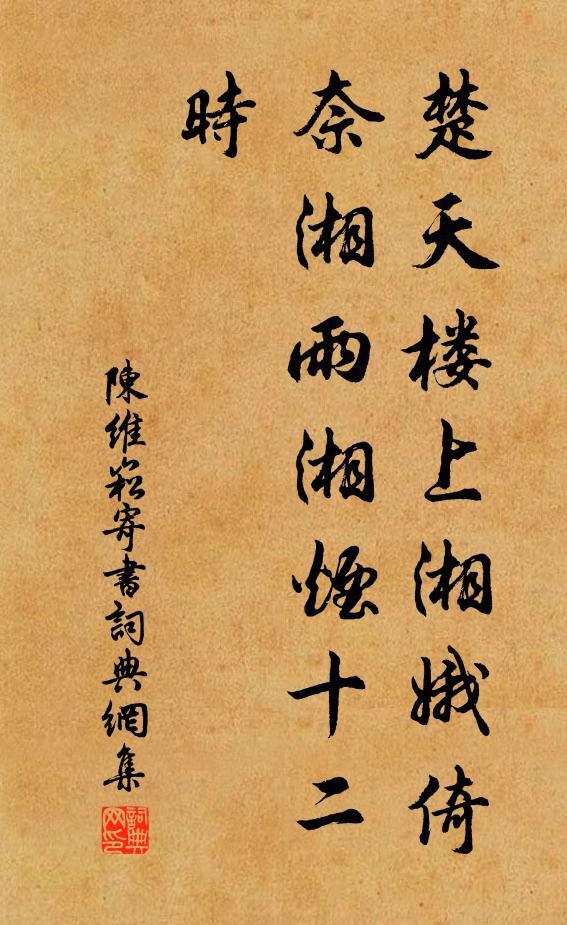 楚天楼上湘娥倚
奈湘雨湘煙十二
時
陳維崧寄書詞典網集
詞典网印